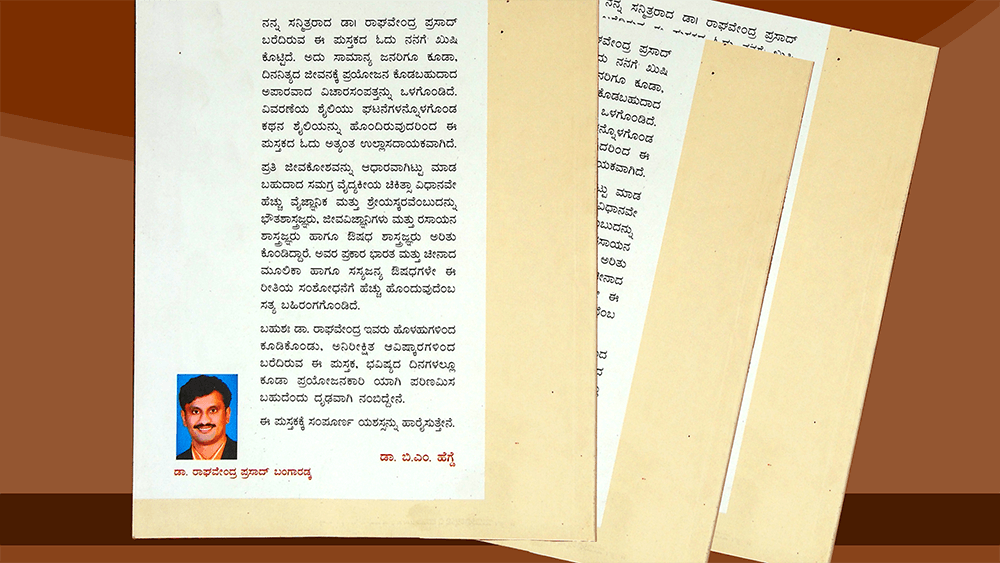 ನನ್ನ ಸನ್ಮಿತ್ರರಾದ ಡಾ। ರಾಘವೇಂದ್ರ ಪ್ರಸಾದ್
ಬರೆದಿರುವ ಈ ಪುಸ್ತಕದ ಓದು ನನಗೆ ಖುಷಿ
ಕೊಟ್ಟಿದೆ. ಅದು ಸಾಮಾನ್ಯ ಜನರಿಗೂ ಕೂಡಾ,
ದಿನನಿತ್ಯದ ಜೀವನಕ್ಕೆ ಪ್ರಯೋಜನ ಕೊಡಬಹುದಾದ
ಅಪಾರವಾದ ವಿಚಾರಸಂಪತ್ತನ್ನು ಒಳಗೊಂಡಿದೆ.
ವಿವರಣೆಯ ಶೈಲಿಯು ಘಟನೆಗಳನ್ನೊಳಗೊಂಡ
ಕಥನ ಶೈಲಿಯನ್ನು ಹೊಂದಿರುವುದರಿಂದ ಈ
ಪುಸ್ತಕದ ಓದು ಅತ್ಯಂತ ಉಲ್ಲಾಸದಾಯಕವಾಗಿದೆ.
ಪ್ರತಿ ಜೀವಕೋಶವನ್ನು ಆಧಾರವಾಗಿಟ್ಟು ಮಾಡ
ಬಹುದಾದ ಸಮಗ್ರ ವೈದ್ಯಕೀಯ ಚಿಕಿತ್ಸಾ ವಿಧಾನವೇ
ಹೆಚ್ಚು ವೈಜ್ಞಾನಿಕ ಮತ್ತು ಶ್ರೇಯಸ್ಕರವೆಂಬುದನ್ನು
ಭೌತಶಾಸ್ತ್ರಜ್ಞರು, ಜೀವವಿಜ್ಞಾನಿಗಳು ಮತ್ತು ರಸಾಯನ
ಶಾಸ್ತ್ರಜ್ಞರು ಹಾಗೂ ಔಷಧ ಶಾಸ್ತ್ರಜ್ಞರು ಅರಿತು
ಕೊಂಡಿದ್ದಾರೆ. ಅವರ ಪ್ರಕಾರ ಭಾರತ ಮತ್ತು ಚೀನಾದ
ಮೂಲಿಕಾ ಹಾಗೂ ಸಸ್ಯಜನ್ಯ ಔಷಧಗಳೇ ಈ
ರೀತಿಯ ಸಂಶೋಧನೆಗೆ ಹೆಚ್ಚು ಹೊಂದುವುದೆಂಬ
ಸತ್ಯ ಬಹಿರಂಗಗೊಂಡಿದೆ.
ಬಹುಶಃ ಡಾ. ರಾಘವೇಂದ್ರ ಇವರು ಹೊಳಹುಗಳಿಂದ
ಕೂಡಿಕೊಂಡು, ಅನಿರೀಕ್ಷಿತ ಆವಿಷ್ಕಾರಗಳಿಂದ
ಬರೆದಿರುವ ಈ ಪುಸ್ತಕ, ಭವಿಷ್ಯದ ದಿನಗಳಲ್ಲೂ
ಕೂಡಾ ಪ್ರಯೋಜನಕಾರಿ ಯಾಗಿ ಪರಿಣಮಿಸ
ಬಹುದೆಂದು ದೃಢವಾಗಿ ನಂಬಿದ್ದೇನೆ.
ಈ ಪುಸ್ತಕಕ್ಕೆ ಸಂಪೂರ್ಣ ಯಶಸ್ಸನ್ನು ಹಾರೈಸುತ್ತೇನೆ.
ಡಾ. ಬಿ.ಎಂ. ಹೆಗ್ಡೆ
ಡಾ. ರಾಘವೇಂದ್ರ ಪ್ರಸಾದ್ ಬಂಗಾರಡ್ಕ
ನನ್ನ ಸನ್ಮಿತ್ರರಾದ ಡಾ। ರಾಘವೇಂದ್ರ ಪ್ರಸಾದ್
ಪ್ರಸಾದ್
ನನಗೆ ಖುಷಿ
ಕೂಡಾ,
ಕೊಡಬಹುದಾದ
ಒಳಗೊಂಡಿದೆ.
ಈ
ಮಾಡ
ವಿಧಾನವೇ
ಅರಿತು
ಈ